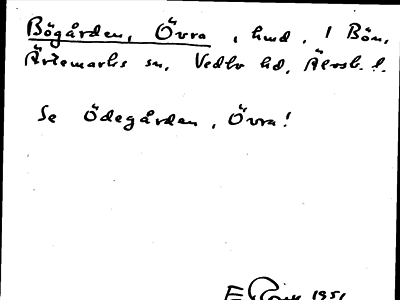 Bögården, Övra, hmd. i Bön,
Ärtemarks sn, Vedbo hd, Älvsb. l.
Se Ödegården, Övra!
1951